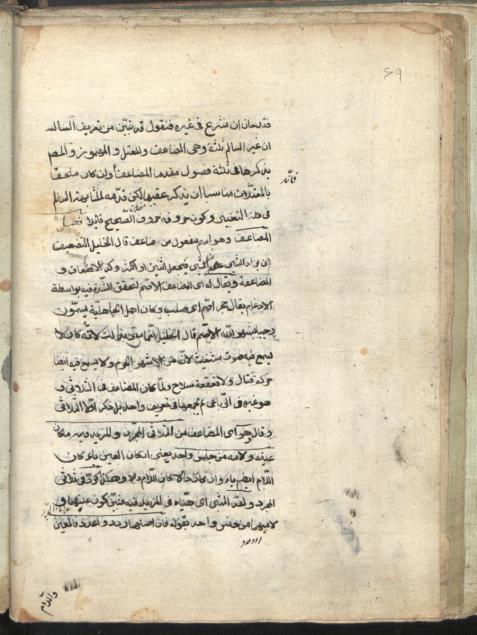 فقد حان ان نشرع في غيره فنقول قد تبين من تعريف السالم
ان غير السالم ثلثة وهي المضاعف والمعتل والمهموز والمصنف
يذكرها في ثلثة فصول مقدما المضاعف وان كان ملحقا
بالمعتلات مناسبا ان يذكر عقيبها لكن قدمه لمشابهته السالم
في قلة التغيير وكون حروفه حروف الصحيح قائلا فصل
المضاعف وهو اسم مفعول من ضاعف قال الخليل التضعيف
ان يزاد الشيء على الشيء فيجعل اثنين او اكثر وكذلك الاضعاف و
المضاعفة ويقال له اي للمضاعف الاصم لتحقق الشدة فيه بواسطة
الادغام يقال حجر اصم اي صلب وكان اهل الجاهلية يسمون
رجبا بشهر الله الاصم قال الخليل انما سمي بذلك لانه كان لا
يسمع فيه صوت مستغيث لانه من الاشهر الحرم ولا يسمع فيه ايضا
حركة قتال ولا قعقعة سلاح ولما كان المضاعف في الثلاثي
هو غيره في الرباعي لم يجمعهما في تعريف واحد بل ذكر اولا الثلاثي
و قال وهو اي المضاعف من الثلاثي المجرد والمزيد فيه ما كان
عينه ولامه من جنس واحد يعني ان كان العين باء كان
اللام ايضا باء وان كان دالا كان اللام دالا وهكذا كرد في الثلاثي
المجرد واعد الشيء اي هيأه في المزيد فيه فتبين كون عينهما و
لاميهما من جنس واحد بقوله فان اصلهما ردد واعدد فالعين
واللام
69